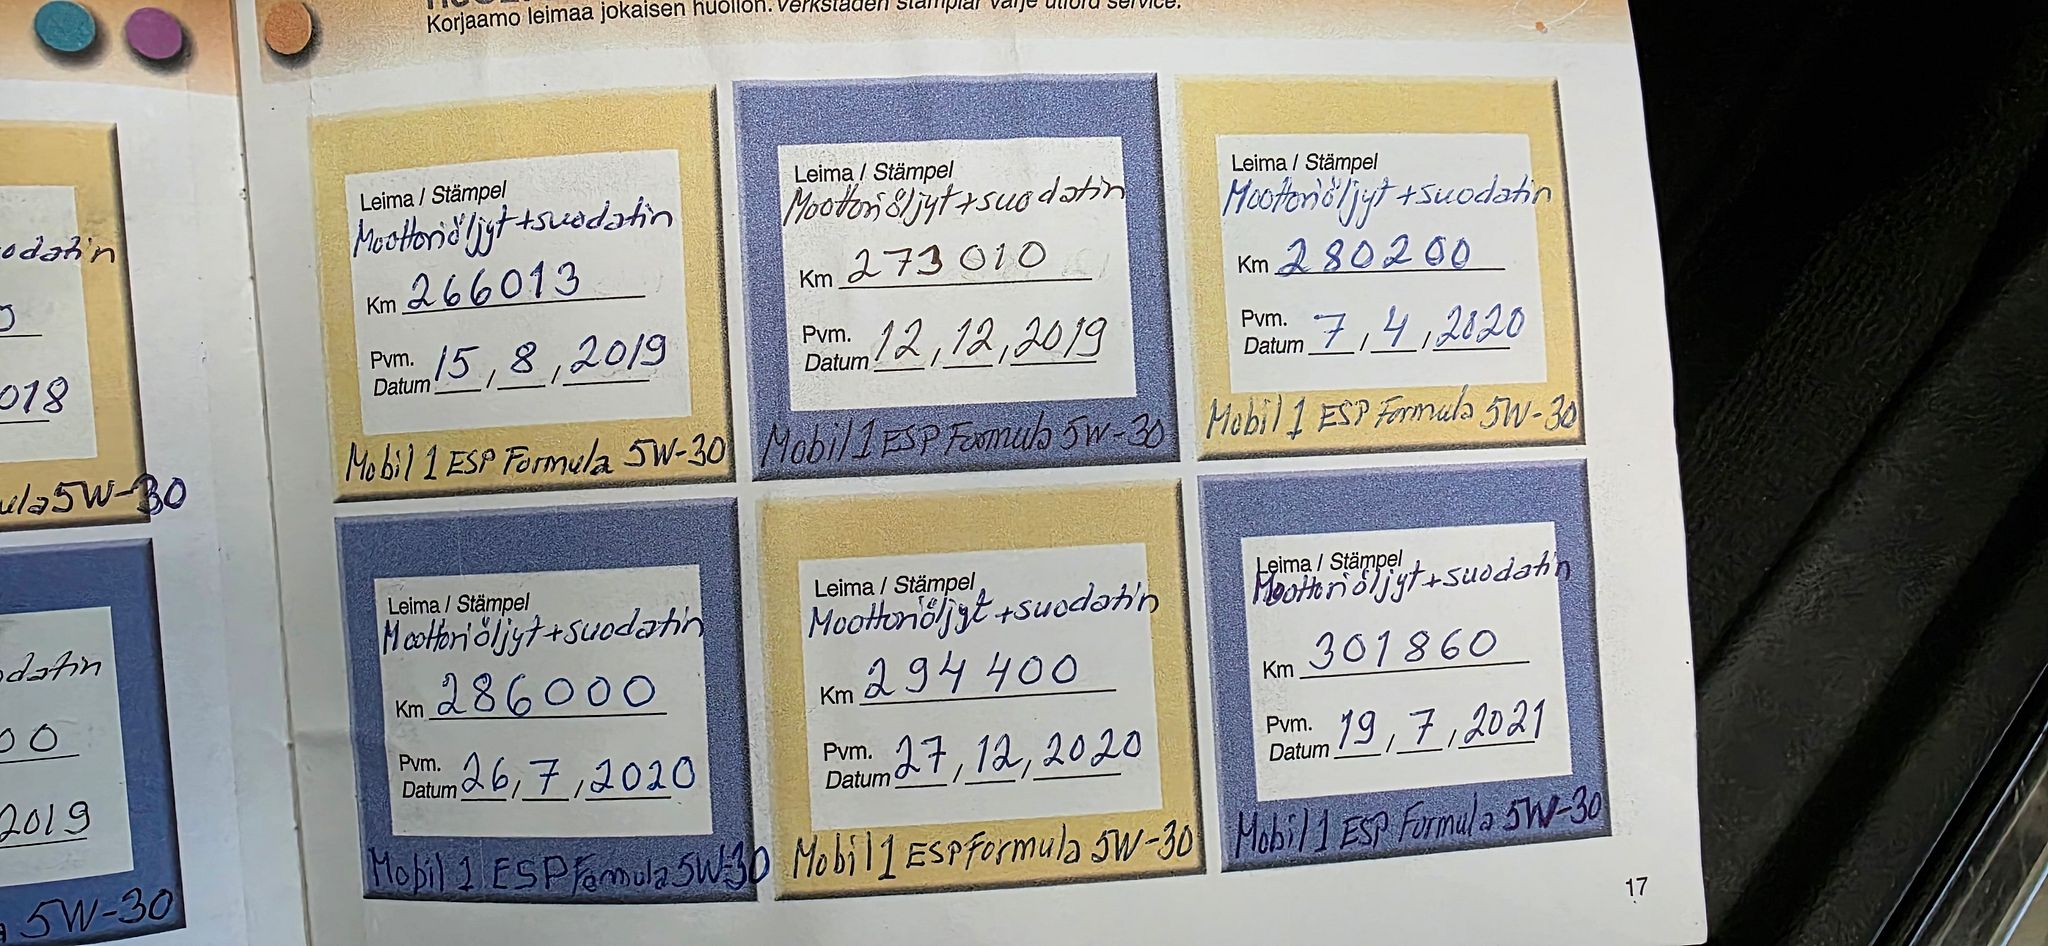 Korjaamo leimaa jokaisen huollon. Verkstaden stämplar varje utförd service.
Leima / Stämpel
Moottoriöljyt + suodatin
Km 266013
Pvm.
Datum 15 / 8 / 2019
Mobil 1 ESP Formula 5W-30
Leima / Stämpel
Moottoriöljyt + suodatin
Km 273 010
Pvm.
Datum 12, 12, 2019
Mobil 1 ESP Formula 5W-30
Leima / Stämpel
Moottoriöljyt + suodatin
Km 280200
Pvm.
Datum 7 / 4 / 2020
Mobil 1 ESP Formula 5W-30
Leima / Stämpel
Moottoriöljyt + suodatin
Km 286000
Pvm.
Datum 26 / 7 / 2020
Mobil 1 ESP Formula 5W-30
Leima / Stämpel
Moottoriöljyt + suodatin
Km 294 400
Pvm.
Datum 27 / 12 / 2020
Mobil 1 ESP Formula 5W-30
Leima / Stämpel
Moottoriöljyt + suodatin
Km 301860
Pvm.
Datum 19 / 7 / 2021
Mobil 1 ESP Formula 5W-30
17
odatin
018
ula 5W-30
odatin
00
2019
5W-30